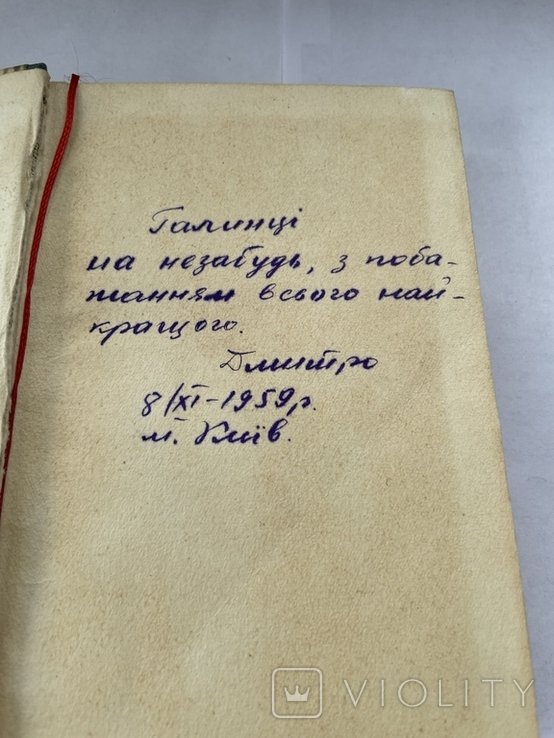 Галинці
на незабудь, з поба-
жанням всього най-
кращого.
Дмитро
8/XI-1959р.
м. Київ.
VIOLITY